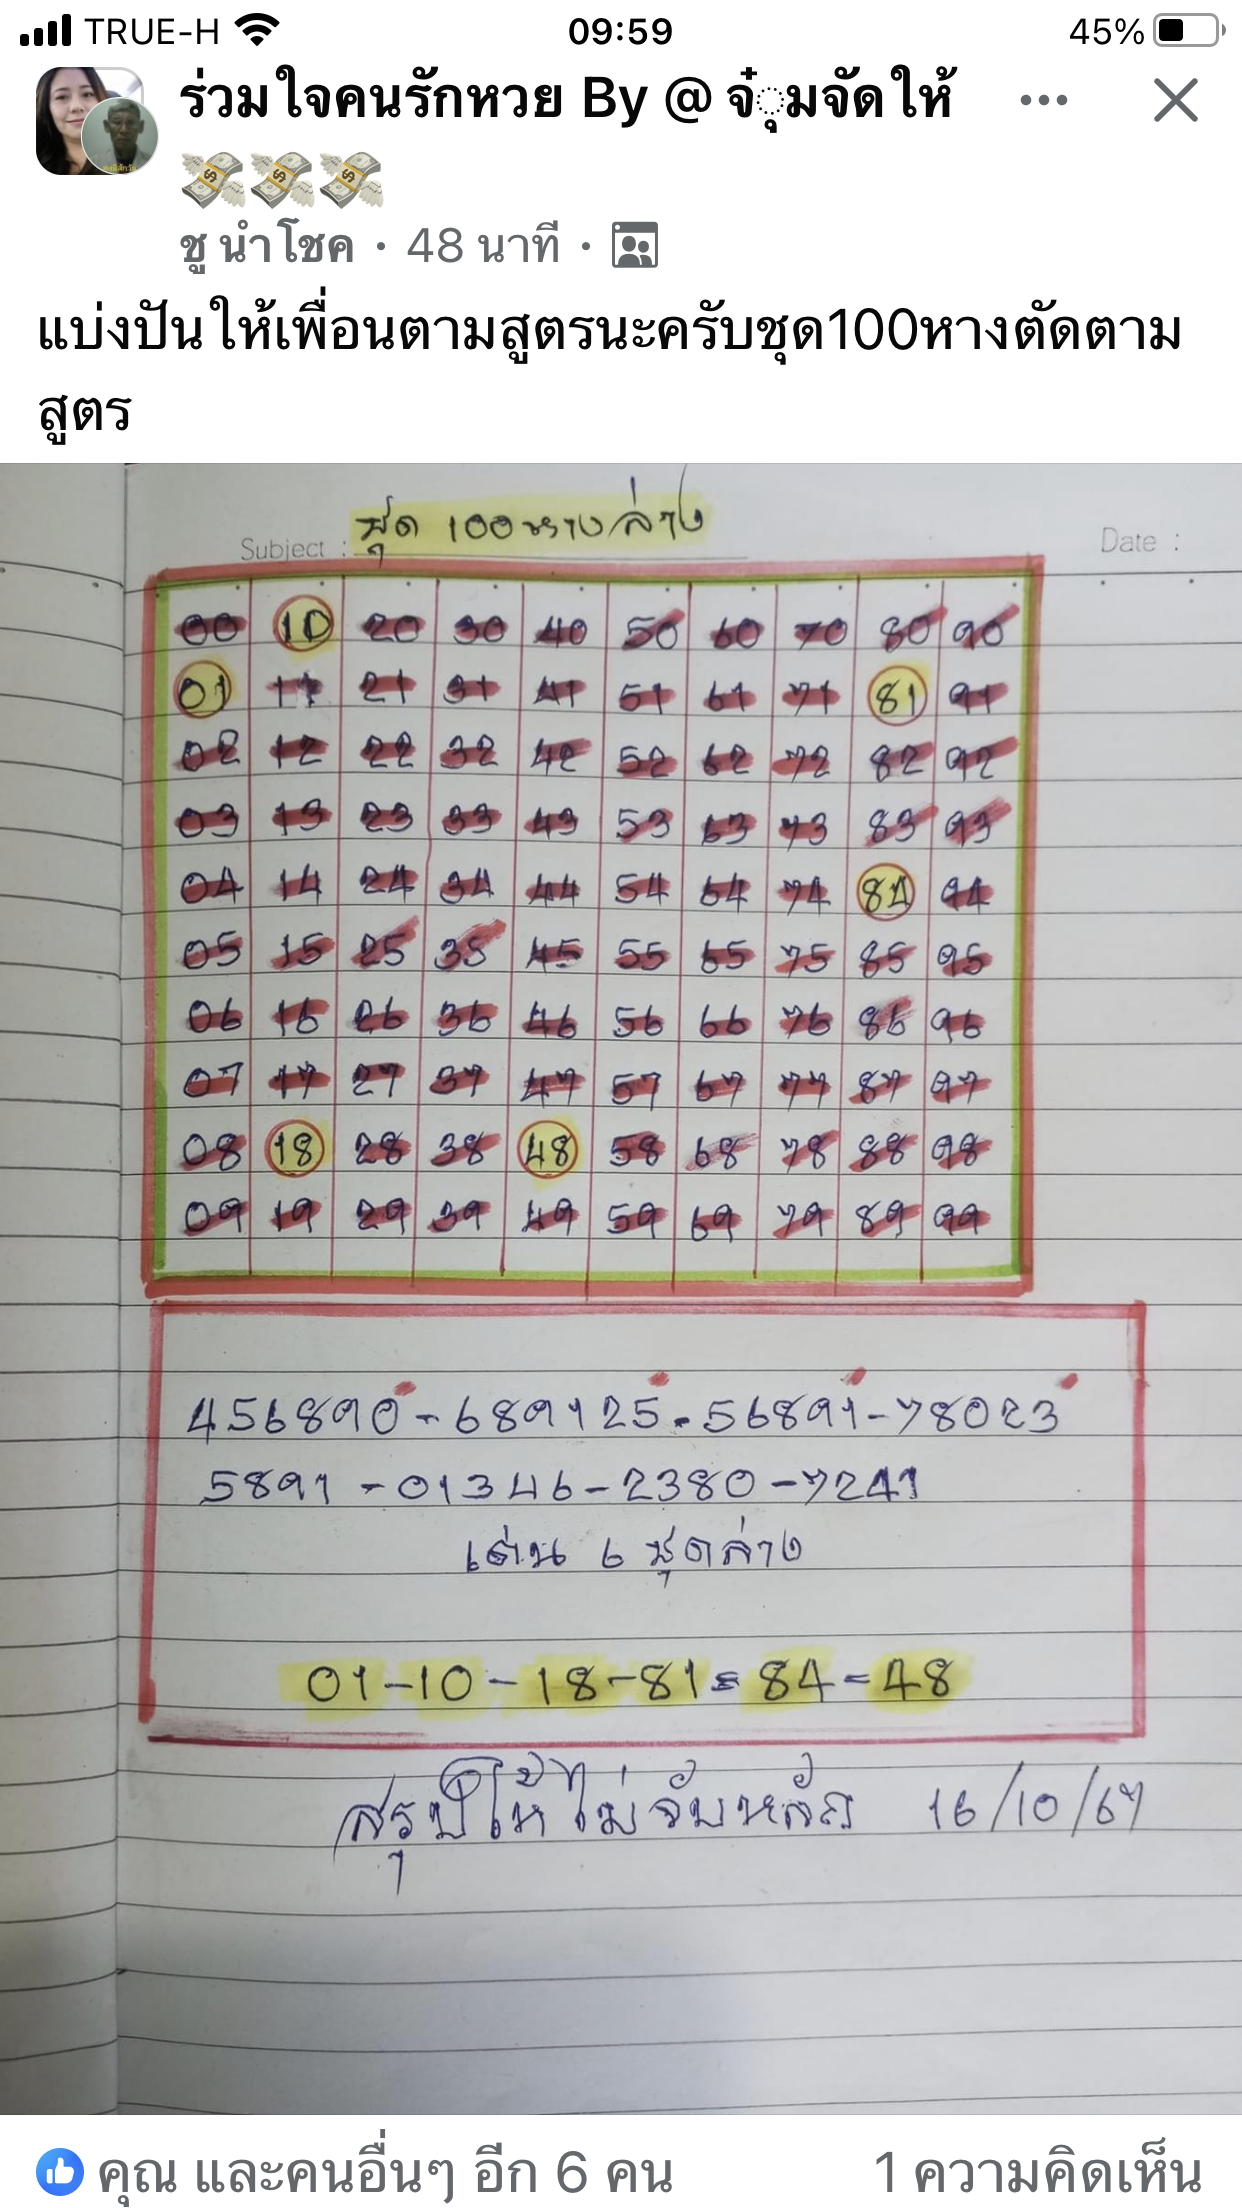 TRUE-H 09:59 45%
ร่วมใจคนรักหวย By @ จํุ๋มจัดให้
💸💸💸
ชู นำโชค · 48 นาที ·
แบ่งปันให้เพื่อนตามสูตรนะครับชุด100หางตัดตาม
สูตร
Subject : ชุด 100 หางล่าง Date :
00 10 20 30 40 50 60 70 80 90
01 11 21 31 41 51 61 71 81 91
02 12 22 32 42 52 62 72 82 92
03 13 23 33 43 53 63 73 83 93
04 14 24 34 44 54 64 74 84 94
05 15 25 35 45 55 65 75 85 95
06 16 26 36 46 56 66 76 86 96
07 17 27 37 47 57 67 77 87 97
08 18 28 38 48 58 68 78 88 98
09 19 29 39 49 59 69 79 89 99
456890-689125-56891-78023
5891-01346-2380-7241
เด่น 6 ชุดล่าง
01-10-18-81=84=48
สรุปให้ไม่จับหลัก 16/10/67
คุณ และคนอื่นๆ อีก 6 คน 1 ความคิดเห็น